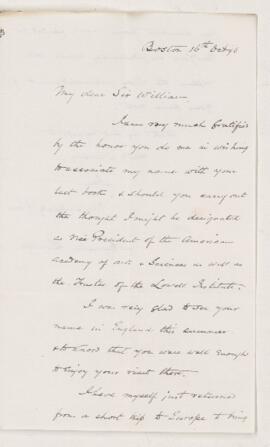 Boston 16th Oct 96
My dear Sir William,
I am very much gratified
by the honor you do me in wishing
to associate my name with your
last book & should you carry out
the thought I might be designated
as Vice President of the American
Academy of Arts & Sciences as well as
the Trustee of the Lowell Institute.
I was very glad to see your
name in England this summer
& to know that you were well enough
to enjoy your visit there.
I have myself just returned
from a short trip to Europe to bring